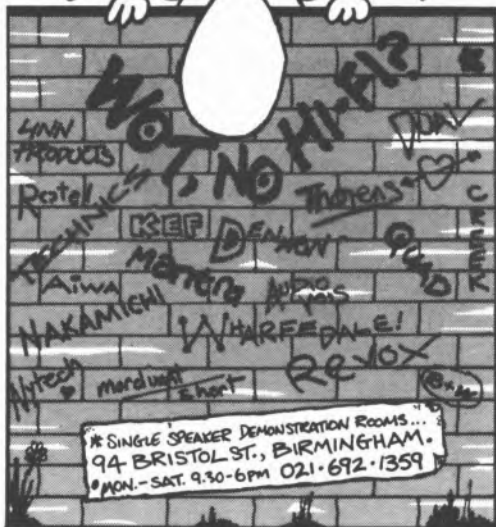 WOT, NO HI-FI?
LYNN
PRODUCTS
DUAL
Rotel
TECHNICS
Thorens
CREEK
KEF
DENNON
QUAD
Mantra
Aiwa
Audio
NAKAMICHI
WHARFEDALE!
REVOX
Nytech
mordaunt
short
* SINGLE SPEAKER DEMONSTRATION ROOMS...
94 BRISTOL ST., BIRMINGHAM.
• MON.-SAT. 9.30-6PM 021·692·1359